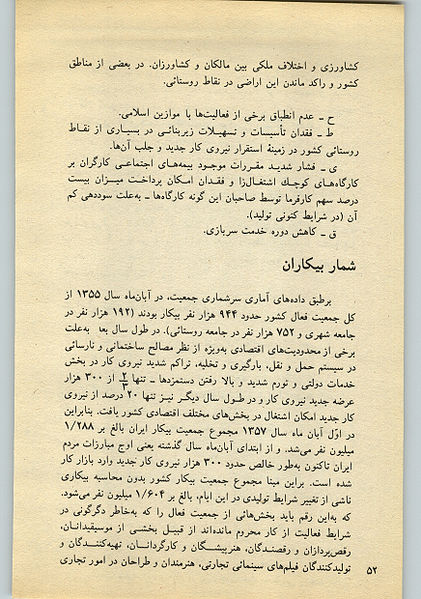 کشاورزی و اختلاف ملکی بین مالکان و کشاورزان. در بعضی از مناطق
کشور و راکد ماندن این اراضی در نقاط روستائی.
ح ـ عدم انطباق برخی از فعالیت‌ها با موازین اسلامی.
ط ـ فقدان تأسیسات و تسهیلات زیربنائی در بسیاری از نقاط
روستائی کشور در زمینهٔ استقرار نیروی کار جدید و جلب آن‌ها.
ی ـ فشار شدید مقررات موجود بیمه‌های اجتماعی کارگران بر
کارگاه‌های کوچک اشتغال‌زا و فقدان امکان پرداخت میزان بیست
درصد سهم کارفرما توسط صاحبان این گونه کارگاه‌ها ـ به‌علت سوددهی کم
آن (در شرایط کنونی تولید).
ق ـ کاهش دوره خدمت سربازی.
شمار بیکاران
برطبق داده‌های آماری سرشماری جمعیت، در آبان‌ماه سال ۱۳۵۵ از
کل جمعیت فعال کشور حدود ۹۴۴ هزار نفر بیکار بودند (۱۹۲ هزار نفر در
جامعه شهری و ۷۵۲ هزار نفر در جامعه روستائی). در طول سال بعد به‌علت
برخی از محدودیت‌های اقتصادی به‌ویژه از نظر مصالح ساختمانی و نارسائی
در سیستم حمل و نقل، بارگیری و تخلیه، تراکم شدید نیروی کار در بخش
خدمات دولتی و تورم شدید و بالا رفتن دستمزدها ـ تنها ۲/۳ از ۳۰۰ هزار
عرضه جدید نیروی کار و در طول سال دیگر نیز تنها ۲۰ درصد از نیروی
کار جدید امکان اشتغال در بخش‌های مختلف اقتصادی کشور یافت. بنابراین
در اوّل آبان ماه سال ۱۳۵۷ مجموع جمعیت بیکار ایران بالغ بر ۱/۲۸۸
میلیون نفر می‌شد. و از ابتدای آبان‌ماه سال گذشته یعنی اوج مبارزات مردم
ایران تاکنون به‌طور خالص حدود ۳۰۰ هزار نیروی کار جدید وارد بازار کار
شده است. براین مبنا مجموع جمعیت بیکار کشور بدون محاسبه بیکاری
ناشی از تغییر شرایط تولیدی در این ایام، بالغ بر ۱/۶۰۴ میلیون نفر می‌شود.
که به‌این رقم باید بخش‌هائی از جمعیت فعال را که به‌خاطر دگرگونی در
شرایط فعالیت از کار محروم مانده‌اند از قبیل بخشی از موسیقیدانان،
رقص‌پردازان و رقصندگان، هنرپیشگان و کارگردانان، تهیه‌کنندگان و
تولیدکنندگان فیلم‌های سینمائی تجارتی، هنرمندان و طراحان در امور تجاری
۵۲